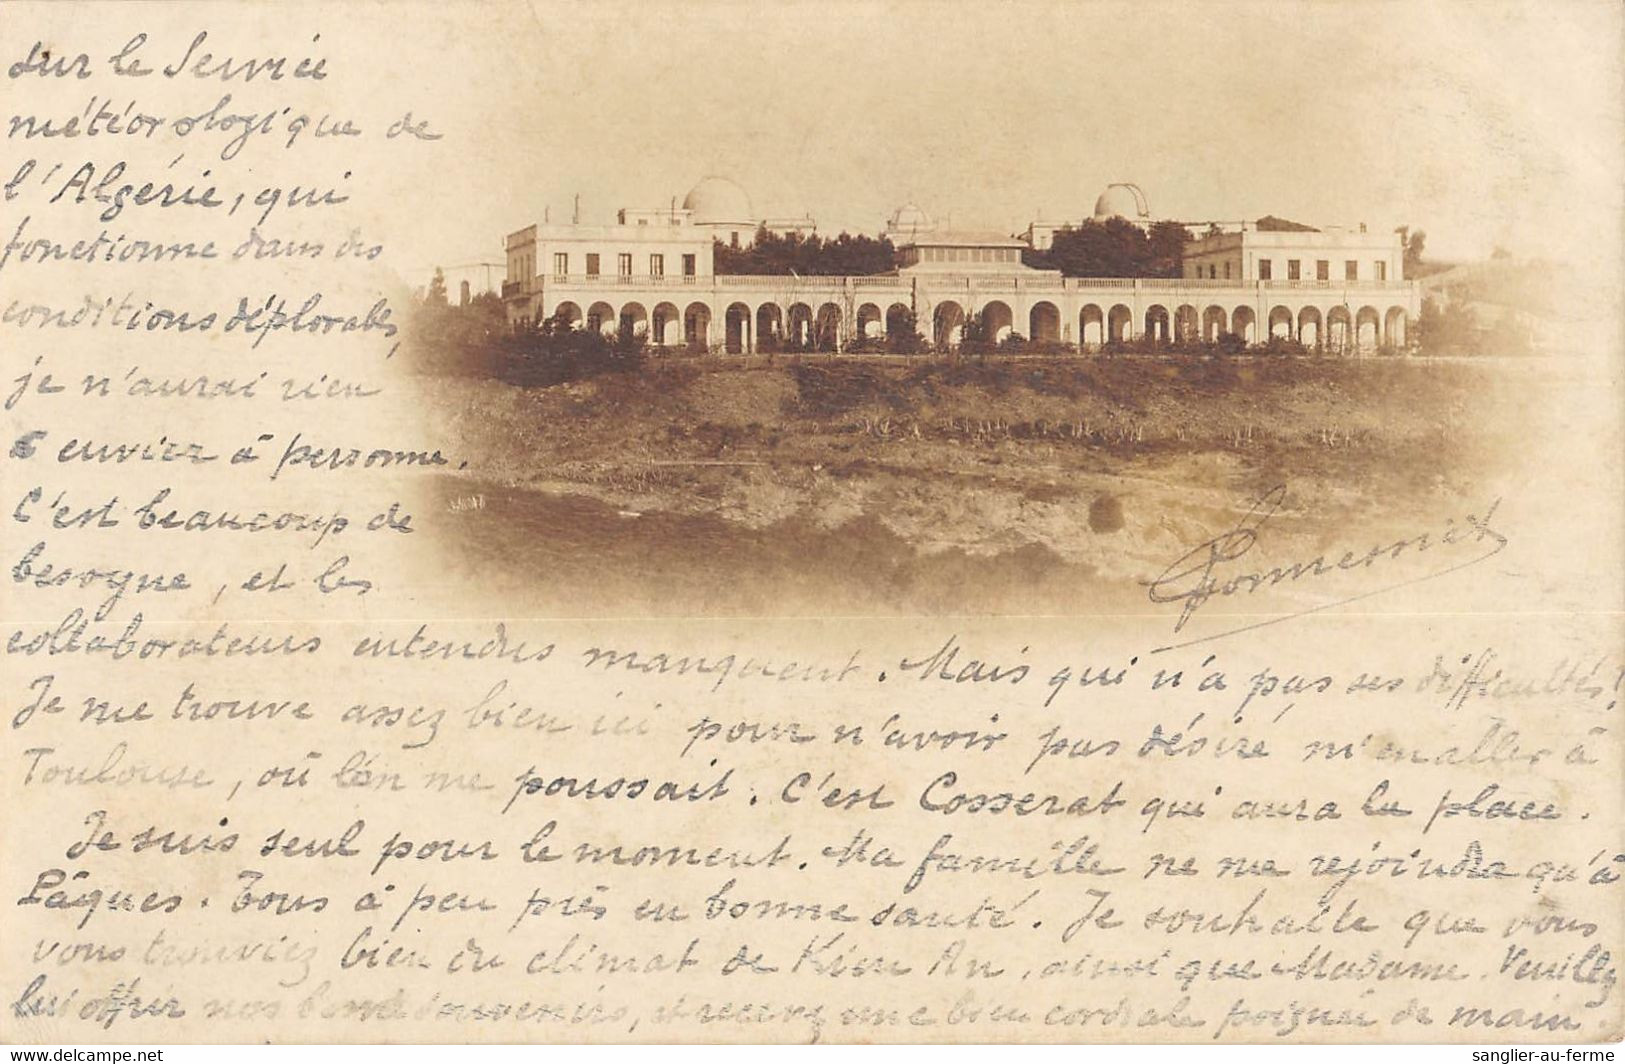 sur le Service
météorologique de
l'Algérie, qui
fonctionne dans des
conditions déplorables,
je n'aurai rien
envier à personne.
C'est beaucoup de
besogne, et les
collaborateurs entendus manquent. Mais qui n'a pas ses difficultés!
Je me trouve assez bien ici pour n'avoir pas désiré m'en aller à
Toulouse, où l'on me poussait. C'est Cosserat qui aura la place.
Je suis seul pour le moment. Ma famille ne me rejoindra qu'à
Pâques. Tous à peu près en bonne santé. Je souhaite que vous
vous trouviez bien du climat de Kien An, ainsi que Madame. Veuillez
lui offrir nos bons souvenirs, et recevez une bien cordiale poignée de main.
Gonnessiat
sanglier-au-ferme